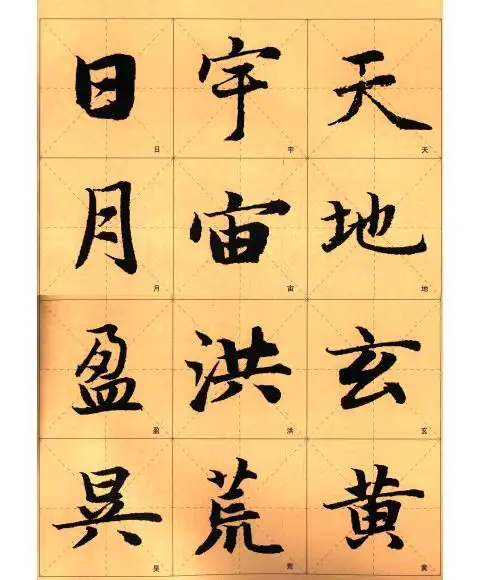 天地玄黄
天地玄黄
宇宙洪荒
宇宙洪荒
日月盈昃
日月盈昃